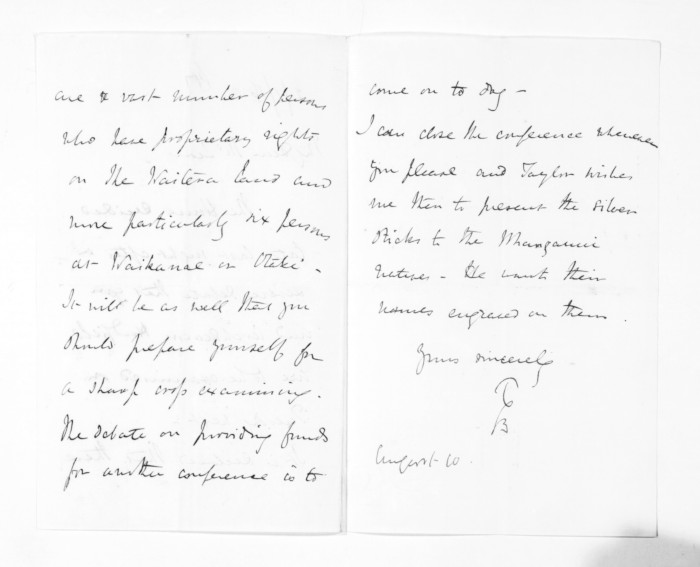 are a vast number of persons
who have proprietary rights
on the Waitera land and
more particularly six persons
at Waikanae or Otaki -
It will be as well that you
should prepare yourself for
a sharp cross examining.
The debate on providing funds
for another conference is to
come on to day -
I can close the conference whenever
you please and Taylor wishes
me then to present the silver
sticks to the Whanganui
natives - He wants their
names engraved on them.
Yours sincerely
B
August 10.